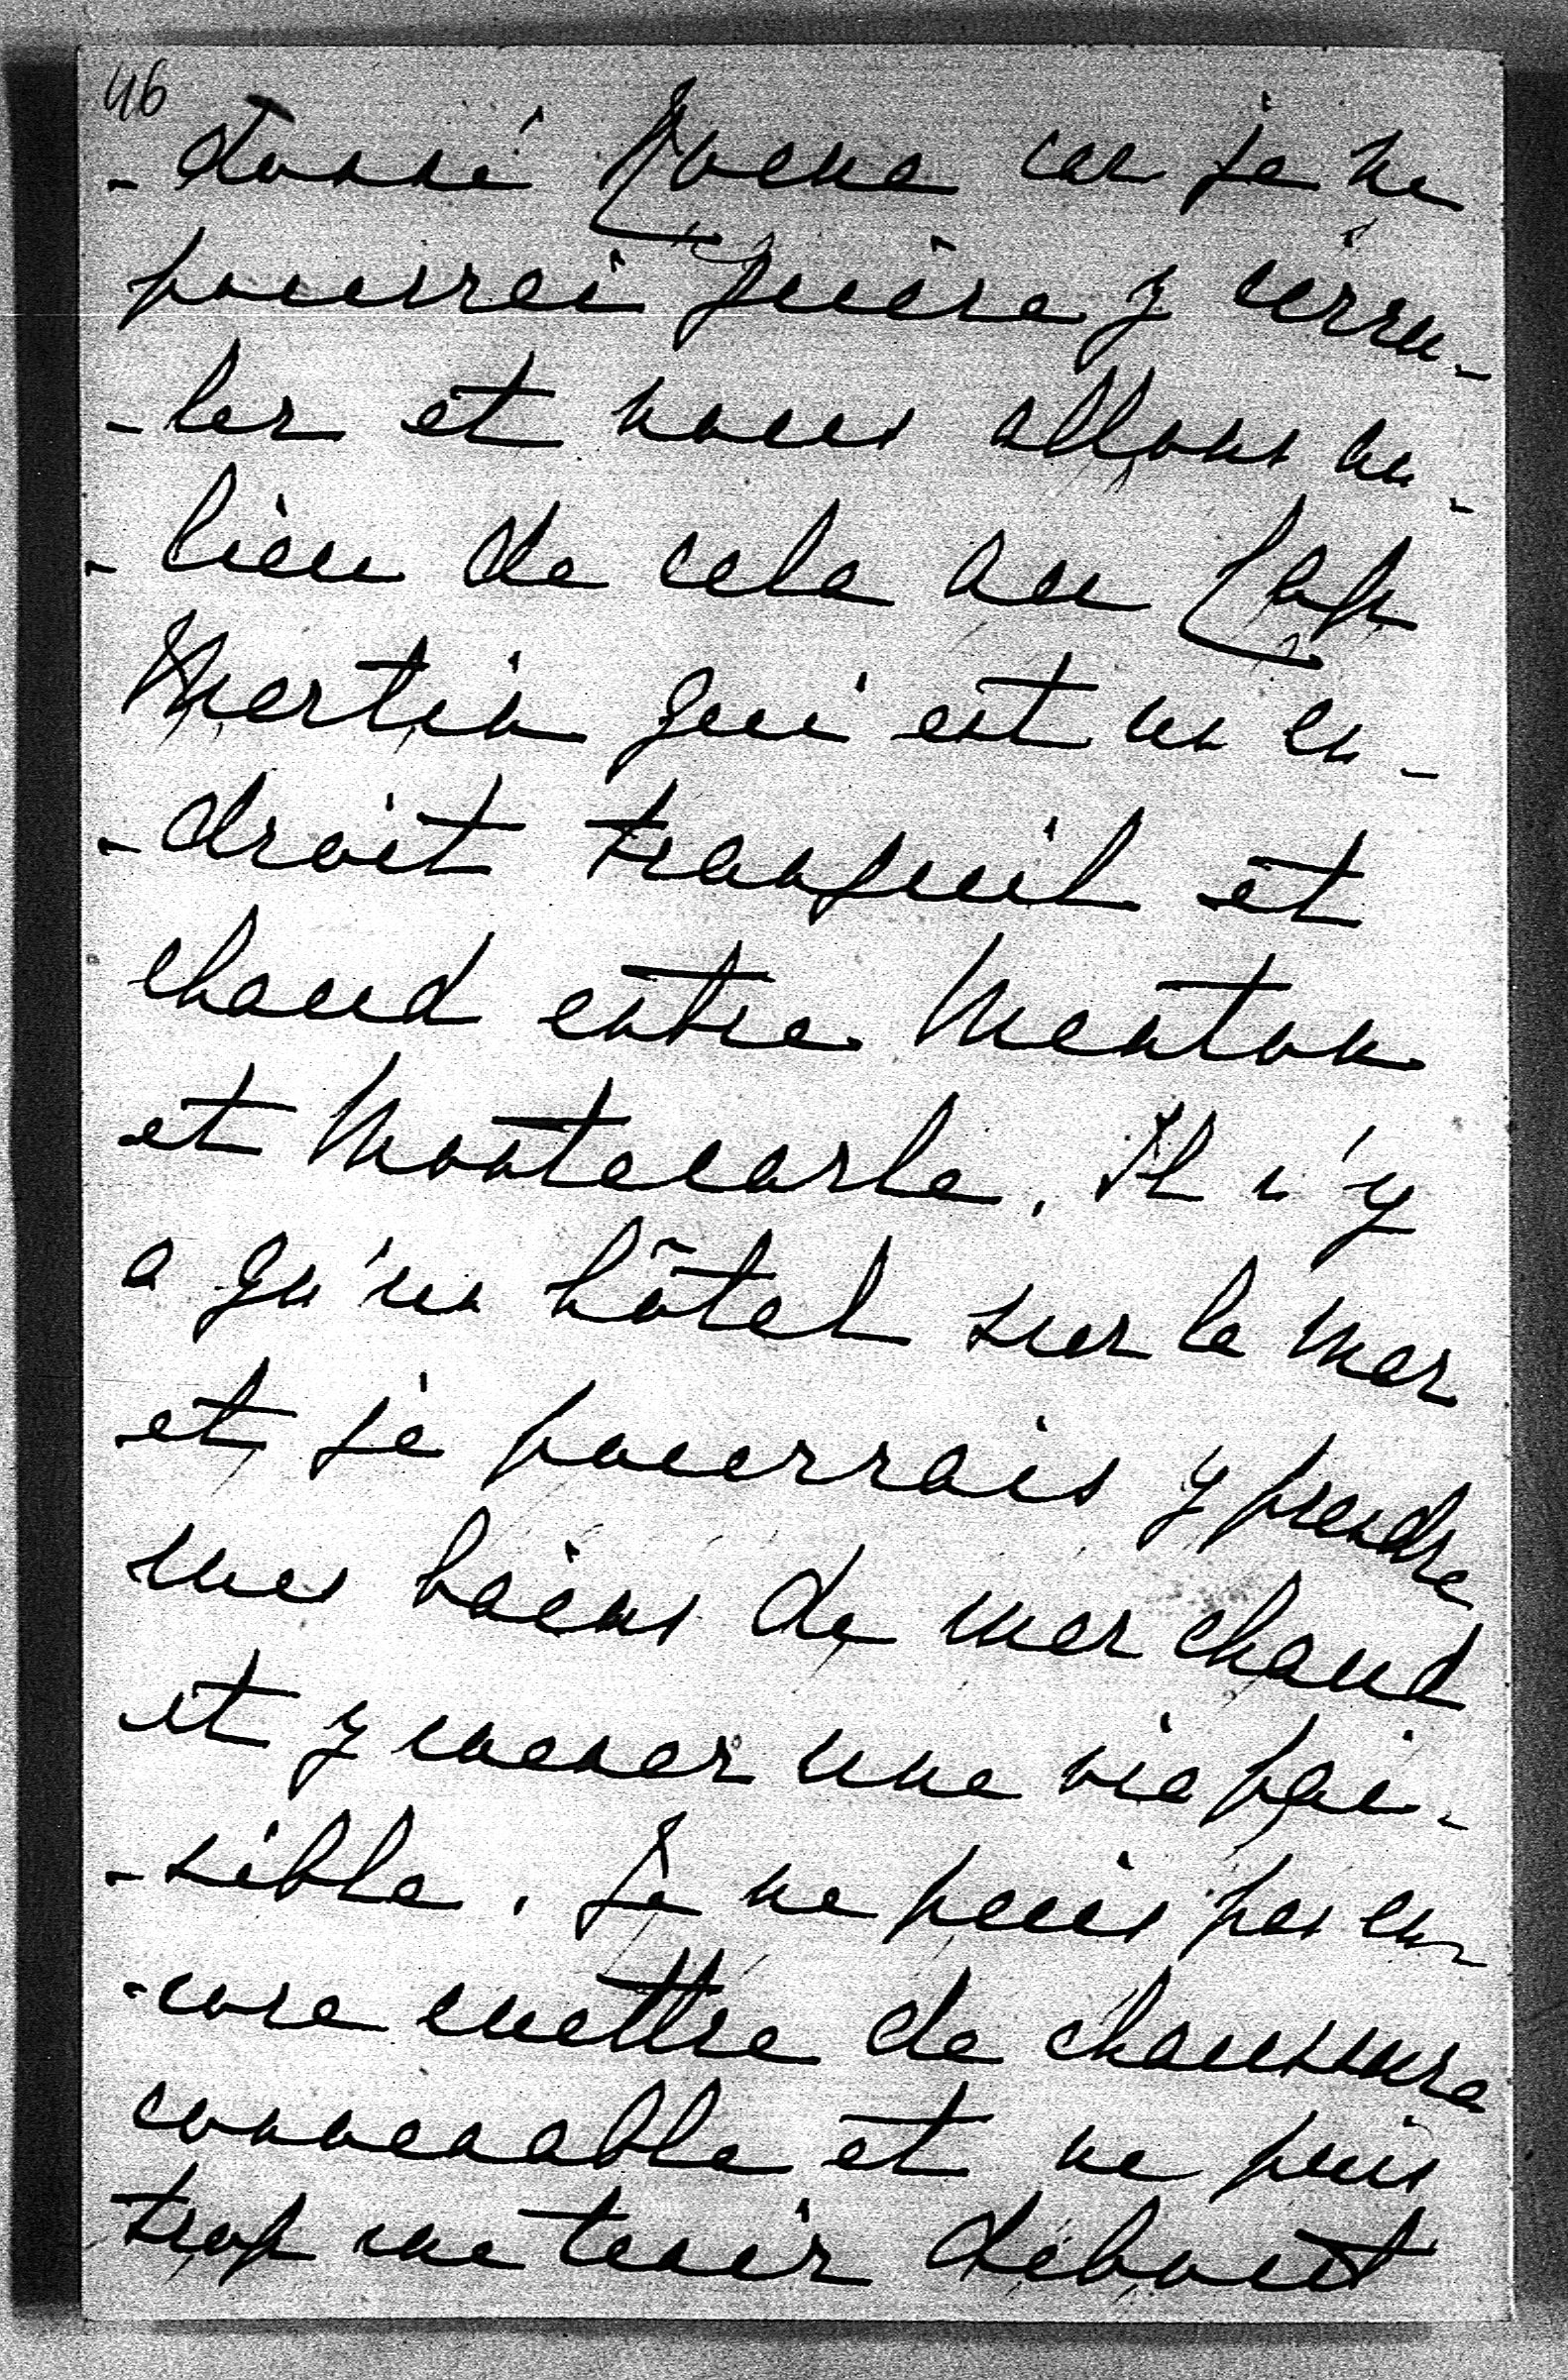 46
- donné Rome car je ne
pourrai guère y circu-
- ler et nous allons au-
- lieu de cela au Cap
Martin qui est un en-
- droit tranquil et
chaud entre Menton
et Montecarlo. Il n'y
a qu'un hôtel sur la mer
et je pourrais y prendre
mes bains de mer chaud
et y mener une vie pai-
- sible. Je ne puis pas en-
- core mettre de chaussure
convenable et ne puis
trop me tenir debout